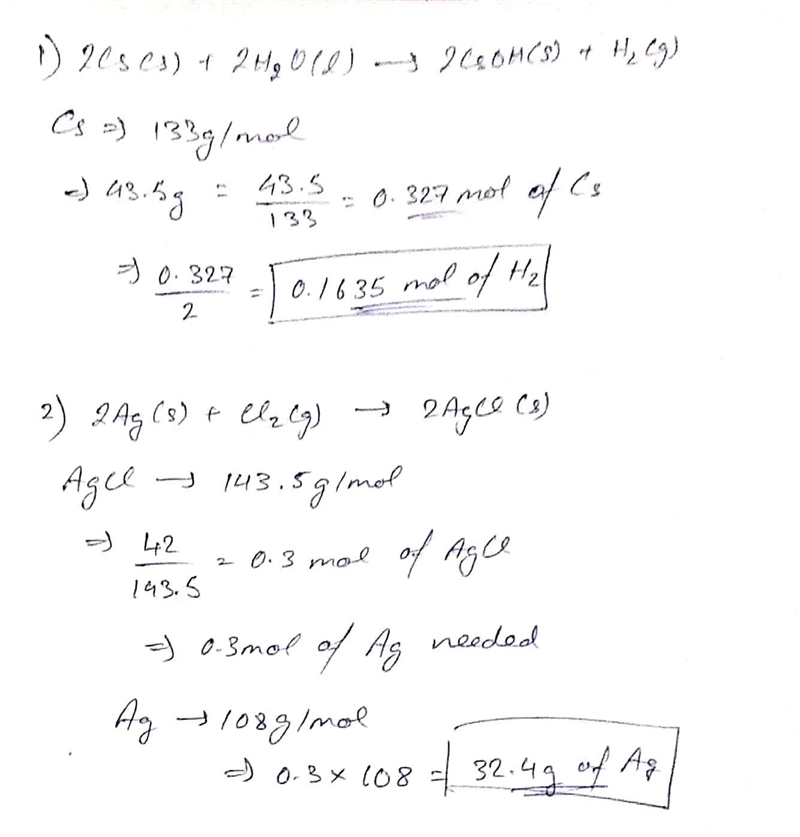 1) 2Cs(s) + 2H₂O(l) → 2CsOH(s) + H₂(g)
Cs ⇒ 133g/mol
⇒ 43.5g = 43.5/133 = 0.327 mol of Cs
⇒ 0.327/2 = 0.1635 mol of H₂
2) 2Ag(s) + Cl₂(g) → 2AgCl(s)
AgCl → 143.5g/mol
⇒ 42/143.5 = 0.3 mol of AgCl
⇒ 0.3mol of Ag needed
Ag → 108g/mol
⇒ 0.3 × 108 = 32.4g of Ag